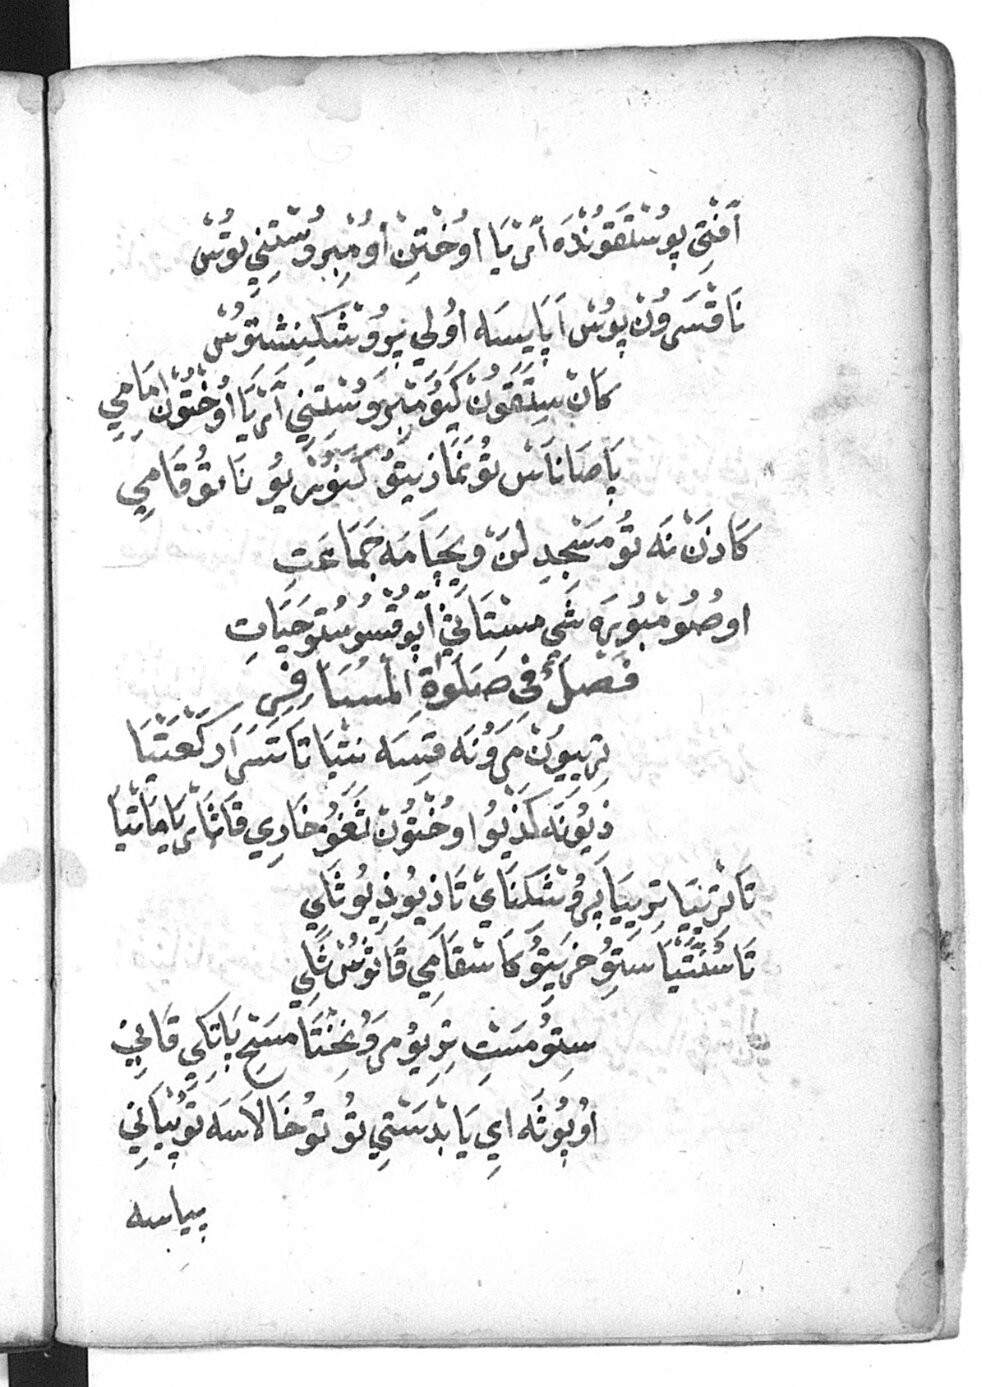 اَفْتِي پُوسْتَقَوُنْدَه اَنْرِيَا اوُخْتِنْ اوُمْبِرُوسْتِنِي تُوسْ
نَاقْسَرُونْ پُوسْ اَپَايِسَه اوُلِي پِرُوشْكِنِشْتُوسْ
كَانْ سِتَقُونْ كَيَوُمْبَرَوُسْتِنِي اَنْرِيَا اوُخْتُونْ اِمَامِي
پَاصَانَاسْ تُو نَمَازِيتُو كَنَوُرْيُو نَاتُو قَامِي
كَادَنْ نَه تُو مَسْجِدِ لَنْ وِيجَامَه جَمَاعَتِ
اوصُو مْبُورَه شَي مِسْتَانِي اَپُوقْسُو سْتُو حَيَاتِ
فَصْلٌ فِي صَلَوٰةِ الْمُسَافِرِ
تِرِيبِيوُنْ مَرَوُنَه قِسَه نِتْيَا تَاكَتَسَرَا رَكْعَتْيَا
ذِيوُنَه كَذْيُو اوُخْتُونْ تَغَوُ خَارِي قَاثَارْيَامَاتْيَا
تَاتْرِيَيَا تِرِيبِيَا پِرُوشْكِنَايْ تَاذِيُو ذِيُوثَايِ
تَاسُنَّتْيَا سَتُو خِرَيتُو كَاسْقَامِي قَاثَوُسْ ثَلِي
سِتُومَسْتِ تِرِيُو مَرَوُنِخْتَا مَسْحِ پَاتَكِي قَانِي
اوُپُوثَه اِي يَابْدَسْتِي تُو تُو خَالَاسَه تُوپِيَانِي
پياسه